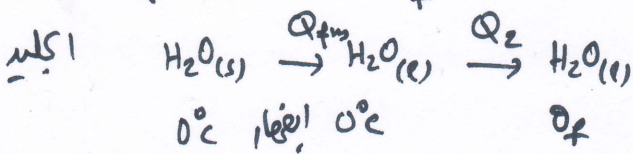 الجليد H₂O(s) →Qfus H₂O(l) →Q₂ H₂O(l)
0°C انصهار 0°C θf